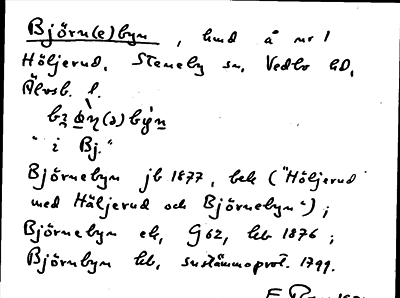 Björn(e)byn, hmd å nr 1
Höljerud, Steneby sn, Vedbo hd,
Älvsb. l.
"i Bj."
Björnebyn jb 1877, bek ("Höljerud
med Häljerud och Björnebyn");
Björnebyn ek, G62, hb 1876;
Björnbyn hb, sustämmoprot. 1799.